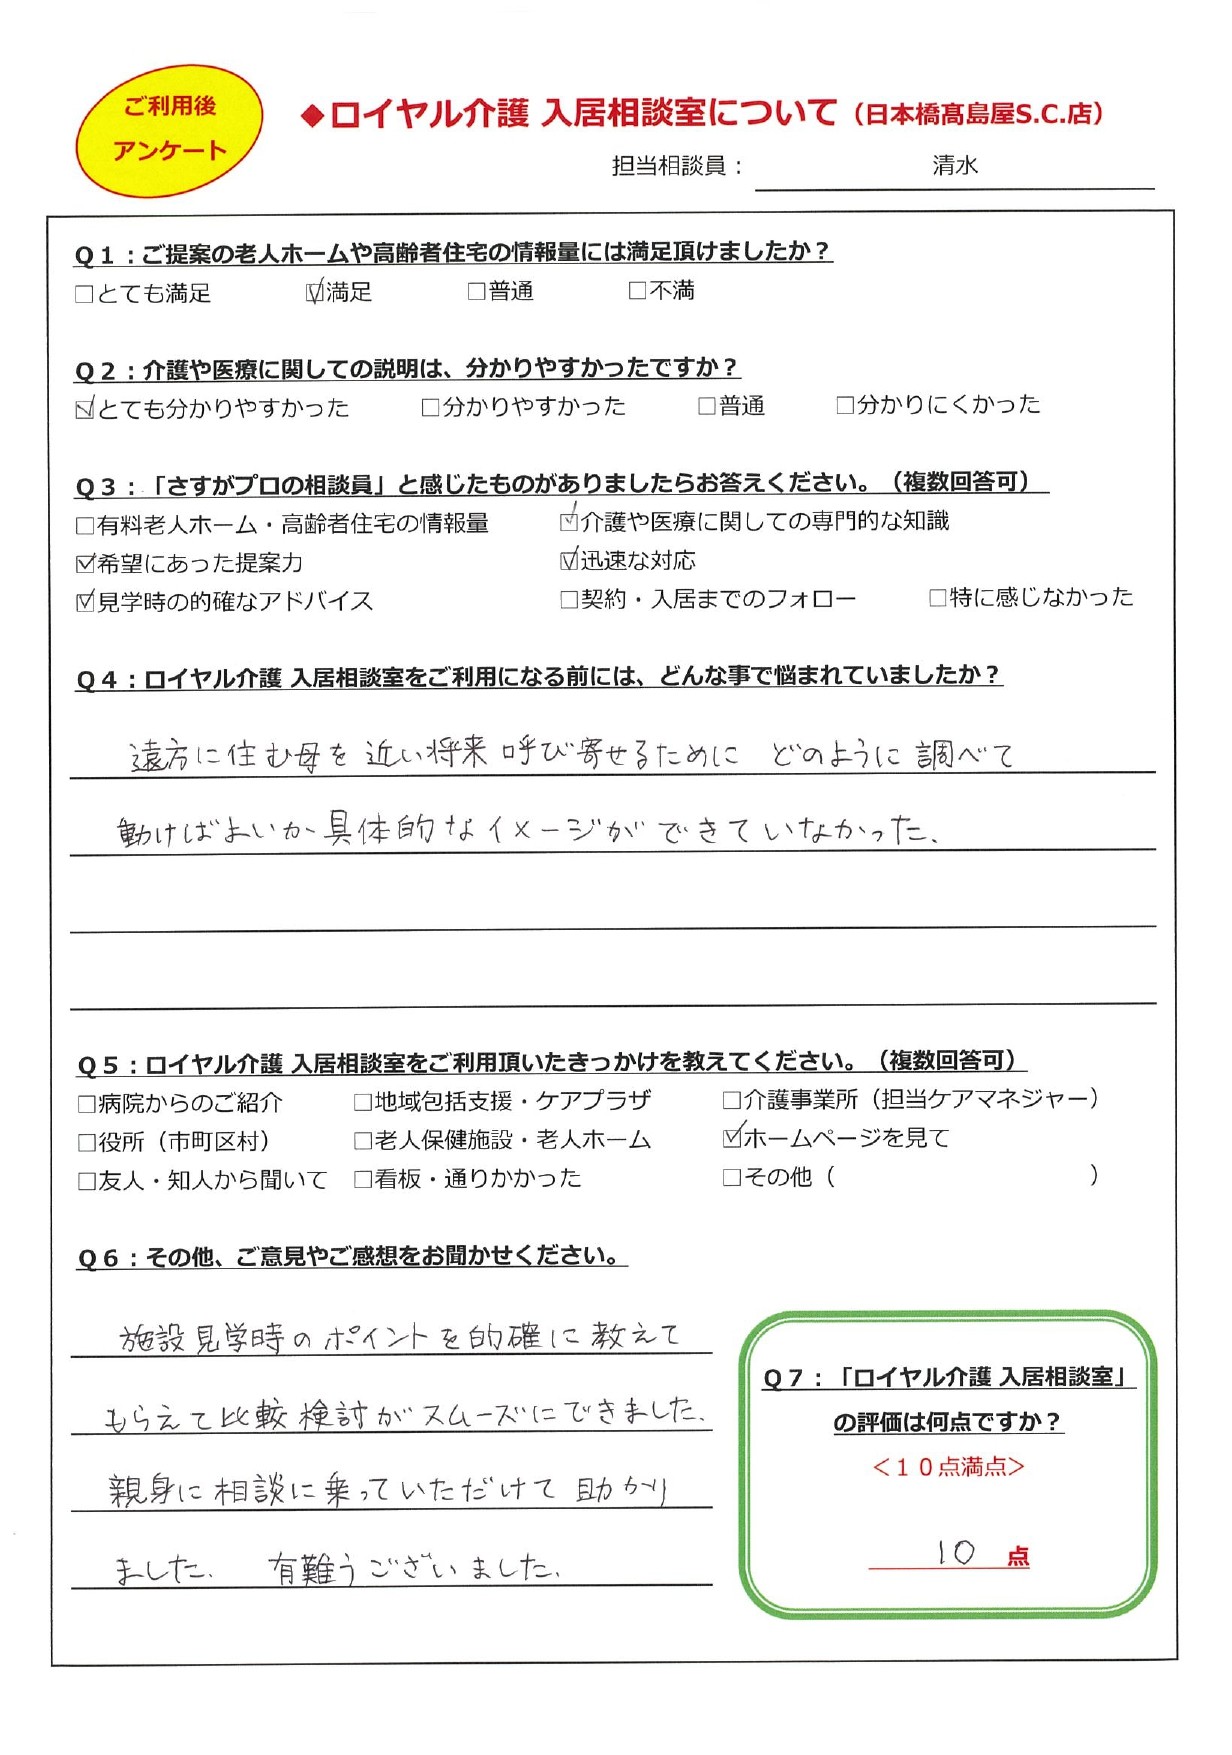 ご利用後
アンケート
◆ロイヤル介護 入居相談室について（日本橋髙島屋S.C.店）
担当相談員： 清水
Ｑ１：ご提案の老人ホームや高齢者住宅の情報量には満足頂けましたか？
□とても満足 ☑満足 □普通 □不満
Ｑ２：介護や医療に関しての説明は、分かりやすかったですか？
☑とても分かりやすかった □分かりやすかった □普通 □分かりにくかった
Ｑ３：「さすがプロの相談員」と感じたものがありましたらお答えください。（複数回答可）
□有料老人ホーム・高齢者住宅の情報量 ☑介護や医療に関しての専門的な知識
☑希望にあった提案力 ☑迅速な対応
☑見学時の的確なアドバイス □契約・入居までのフォロー □特に感じなかった
Ｑ４：ロイヤル介護 入居相談室をご利用になる前には、どんな事で悩まれていましたか？
遠方に住む母を近い将来呼び寄せるために どのように調べて
動けばよいか具体的なイメージができていなかった。
Ｑ５：ロイヤル介護 入居相談室をご利用頂いたきっかけを教えてください。（複数回答可）
□病院からのご紹介 □地域包括支援・ケアプラザ □介護事業所（担当ケアマネジャー）
□役所（市町区村） □老人保健施設・老人ホーム ☑ホームページを見て
□友人・知人から聞いて □看板・通りかかった □その他（ ）
Ｑ６：その他、ご意見やご感想をお聞かせください。
施設見学時のポイントを的確に教えて
もらえて比較検討がスムーズにできました。
親身に相談に乗っていただけて助かり
ました。 有難うございました。
Ｑ７：「ロイヤル介護 入居相談室」
の評価は何点ですか？
＜１０点満点＞
10 点